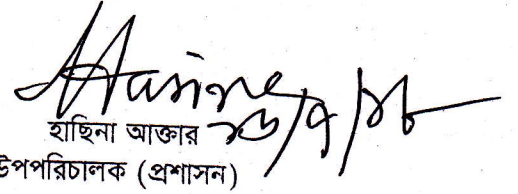 Hasina
হাছিনা আক্তার
উপপরিচালক (প্রশাসন)